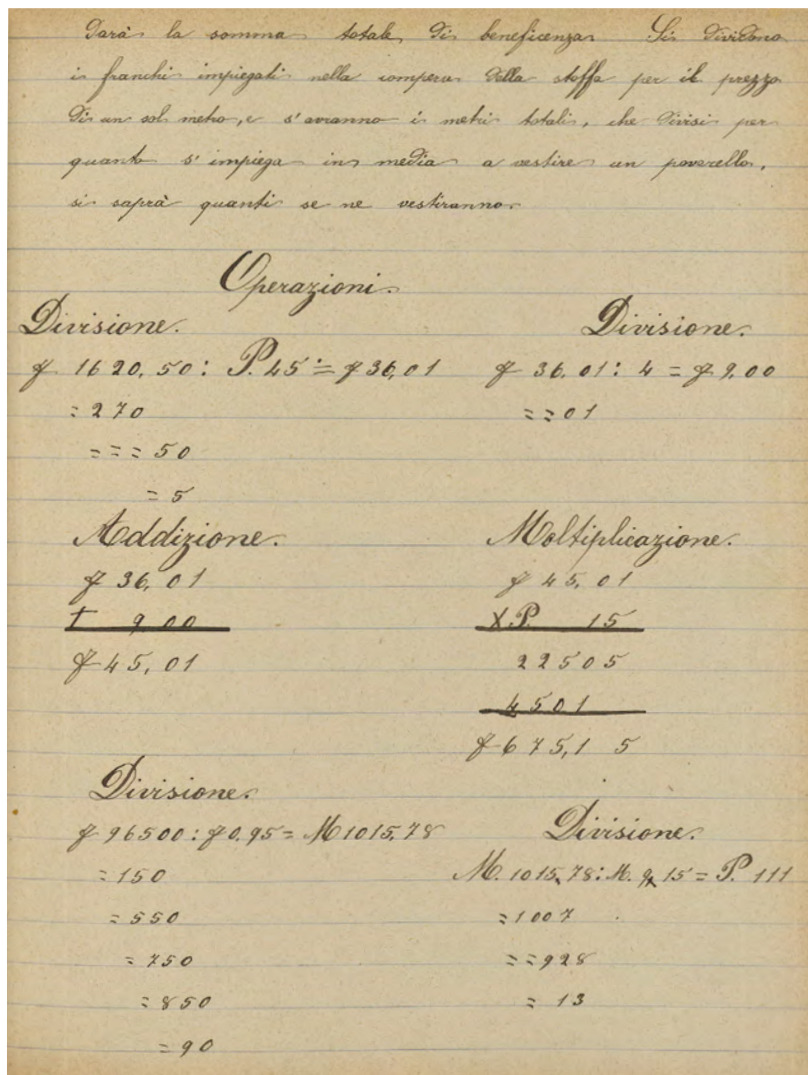 darà la somma totale di beneficenza Si dividono
i franchi impiegati nella compera della stoffa per il prezzo
di un sol metro, e s'avranno i metri totali, che divisi per
quanto s'impiega in media a vestire un poverello,
si saprà quanti se ne vestiranno.
Operazioni.
Divisione.
₣ 1620,50 : P. 45 = ₣ 36,01
= 270
= = = 50
= 5
Divisione.
₣ 36,01 : 4 = ₣ 9,00
= = 01
Addizione.
₣ 36,01
+ 9,00
₣ 45,01
Moltiplicazione.
₣ 45,01
X P. 15
22505
4501
₣ 675,15
Divisione.
₣ 96500 : ₣ 0.95 = M 1015,78
= 150
= 550
= 750
= 850
= 90
Divisione.
M. 1015,78 : M. 9,15 = P. 111
= 1007
= = 928
= 13